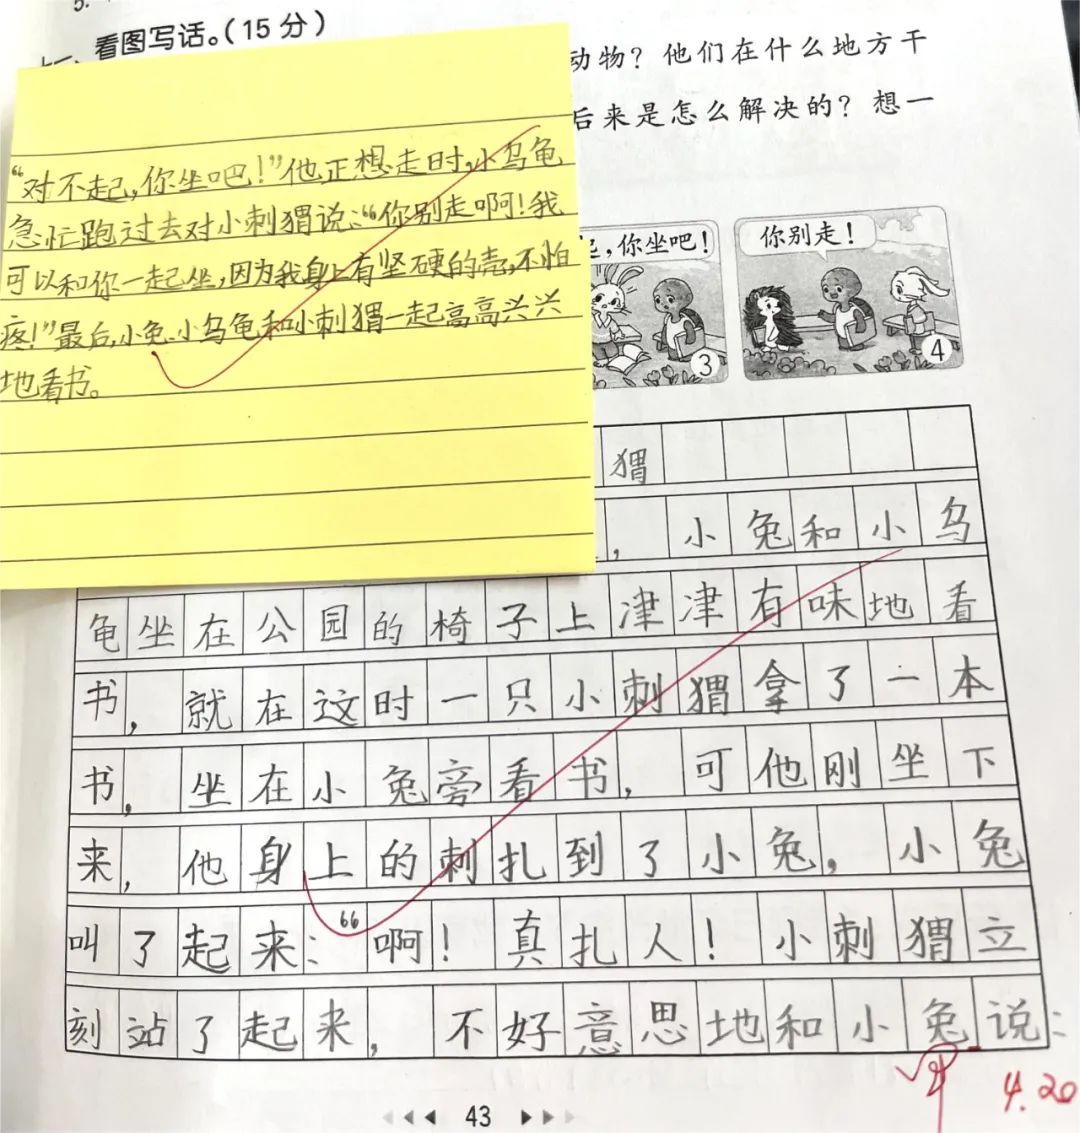 5.
看图写话。(15分)
动物？他们在什么地方干
后来是怎么解决的？想一
“对不起，你坐吧！”他正想走时，小乌龟
急忙跑过去对小刺猬说：“你别走啊！我
可以和你一起坐，因为我身上有坚硬的壳，不怕
疼！”最后，小兔、小乌龟和小刺猬一起高高兴兴
地看书。
起，你坐吧！
③
你别走！
④
猬
，小兔和小乌
龟坐在公园的椅子上津津有味地看
书，就在这时一只小刺猬拿了一本
书，坐在小兔旁看书，可他刚坐下
来，他身上的刺扎到了小兔，小兔
叫了起来：“啊！真扎人！小刺猬立
刻站了起来，不好意思地和小兔说：
4.20
43